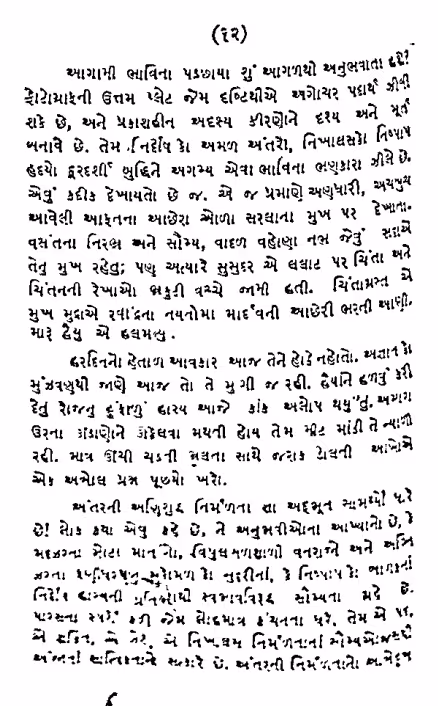 (૬૨)
આગામી ભાવિના પડછાયા શું આગળથી અનુભવાતા હશે?
ફોટોગ્રાફની ઉત્તમ પ્લેટ જેમ દષ્ટિથીએ અગોચર પદાર્થ ઝીલી
શકે છે, અને પ્રકાશહીન અદસ્ય કીરણોને દશ્ય અને મૂર્ત
બનાવે છે. તેમ નિર્દોષ કે અમળ અંતરો, નિખાલસકે નિષ્પાપ
હૃદયો દૂરદર્શી બુદ્ધિને અગમ્ય એવા ભાવિના ભણકારા ઝીલે છે.
એવું કદીક દેખાયતો છે જ. એ જ પ્રમાણે અણધારી, અચબુચ
આવેલી આફતના આછેરા ઓળા સરલાના મુખ પર દેખાતા.
વસંતના નિરભ્ર અને સૌમ્ય, વાદળ વહોણા નભ જેવું સદાએ
તેનુ મુખ રહેતુ; પણ અત્યારે સુસુદર એ લલાટ પર ચિંતા અને
ચિંતનની રેખાઓ ભ્રકુટી વચ્ચે જામી હતી. ચિંતાગ્રસ્ત એ
મુખ મુદ્રાએ રવીંદ્રના નયનોમા માર્દવની આછેરી ભરતી આણી.
મારૂ હૈયુ એ હલમલ્યુ.
હરદિનનો હેતાળ આવકાર આજ તેને હોઠે નહોતો. અજ્ઞાત કો
મુંઝવણથી જાણે આજ તો તે મુગી જ રહી. હૈયાને હળવું કરી
દેતુ રોજનુ દૂધાળું હાસ્ય આજે કાંક અલોપ થયુ'તુ. અગાગ
ઉરના ઊંડાણોને ઊકેલવા મથતી હોય તેમ મીટ માંડી તે ન્યાળી
રહી. માત્ર ઊંચી ચડતી ભ્રૂલતા સાથે જરાક ડોલતી આંખોએ
એક અબોલ પ્રશ્ન પૂછ્યો ખરો.
અંતરની અણિશુદ્ધ નિર્મળતા શા અદ્ભૂત સામર્થ્યો ધરે
છે! લોક કથા એવુ કહે છે, ને અનુભવીઓના આખ્યાનો છે, કે
મદઝરતા મોટા માતંગો, વિપુલબળશાળી વનરાજો અને અગ્નિ
ઝરતા સુકોમળ કો સુંદરીનાં, કે નિષ્પાપ કો બાળકનાં
નિર્દોષ હાસ્યની સ્વભાવવિરૂદ્ધ સૌમ્યતા ગ્રહે છે.
પારસના સ્પર્શે કરી જેમ લોહમાત્ર કંચનતા ધરે, તેમ એ પણ,
એ શક્તિ, એ નિખાલસ નિર્મળતાનાં
સાત્વિકતાને સત્કારે છે. અંતરની નિર્મળતાનો